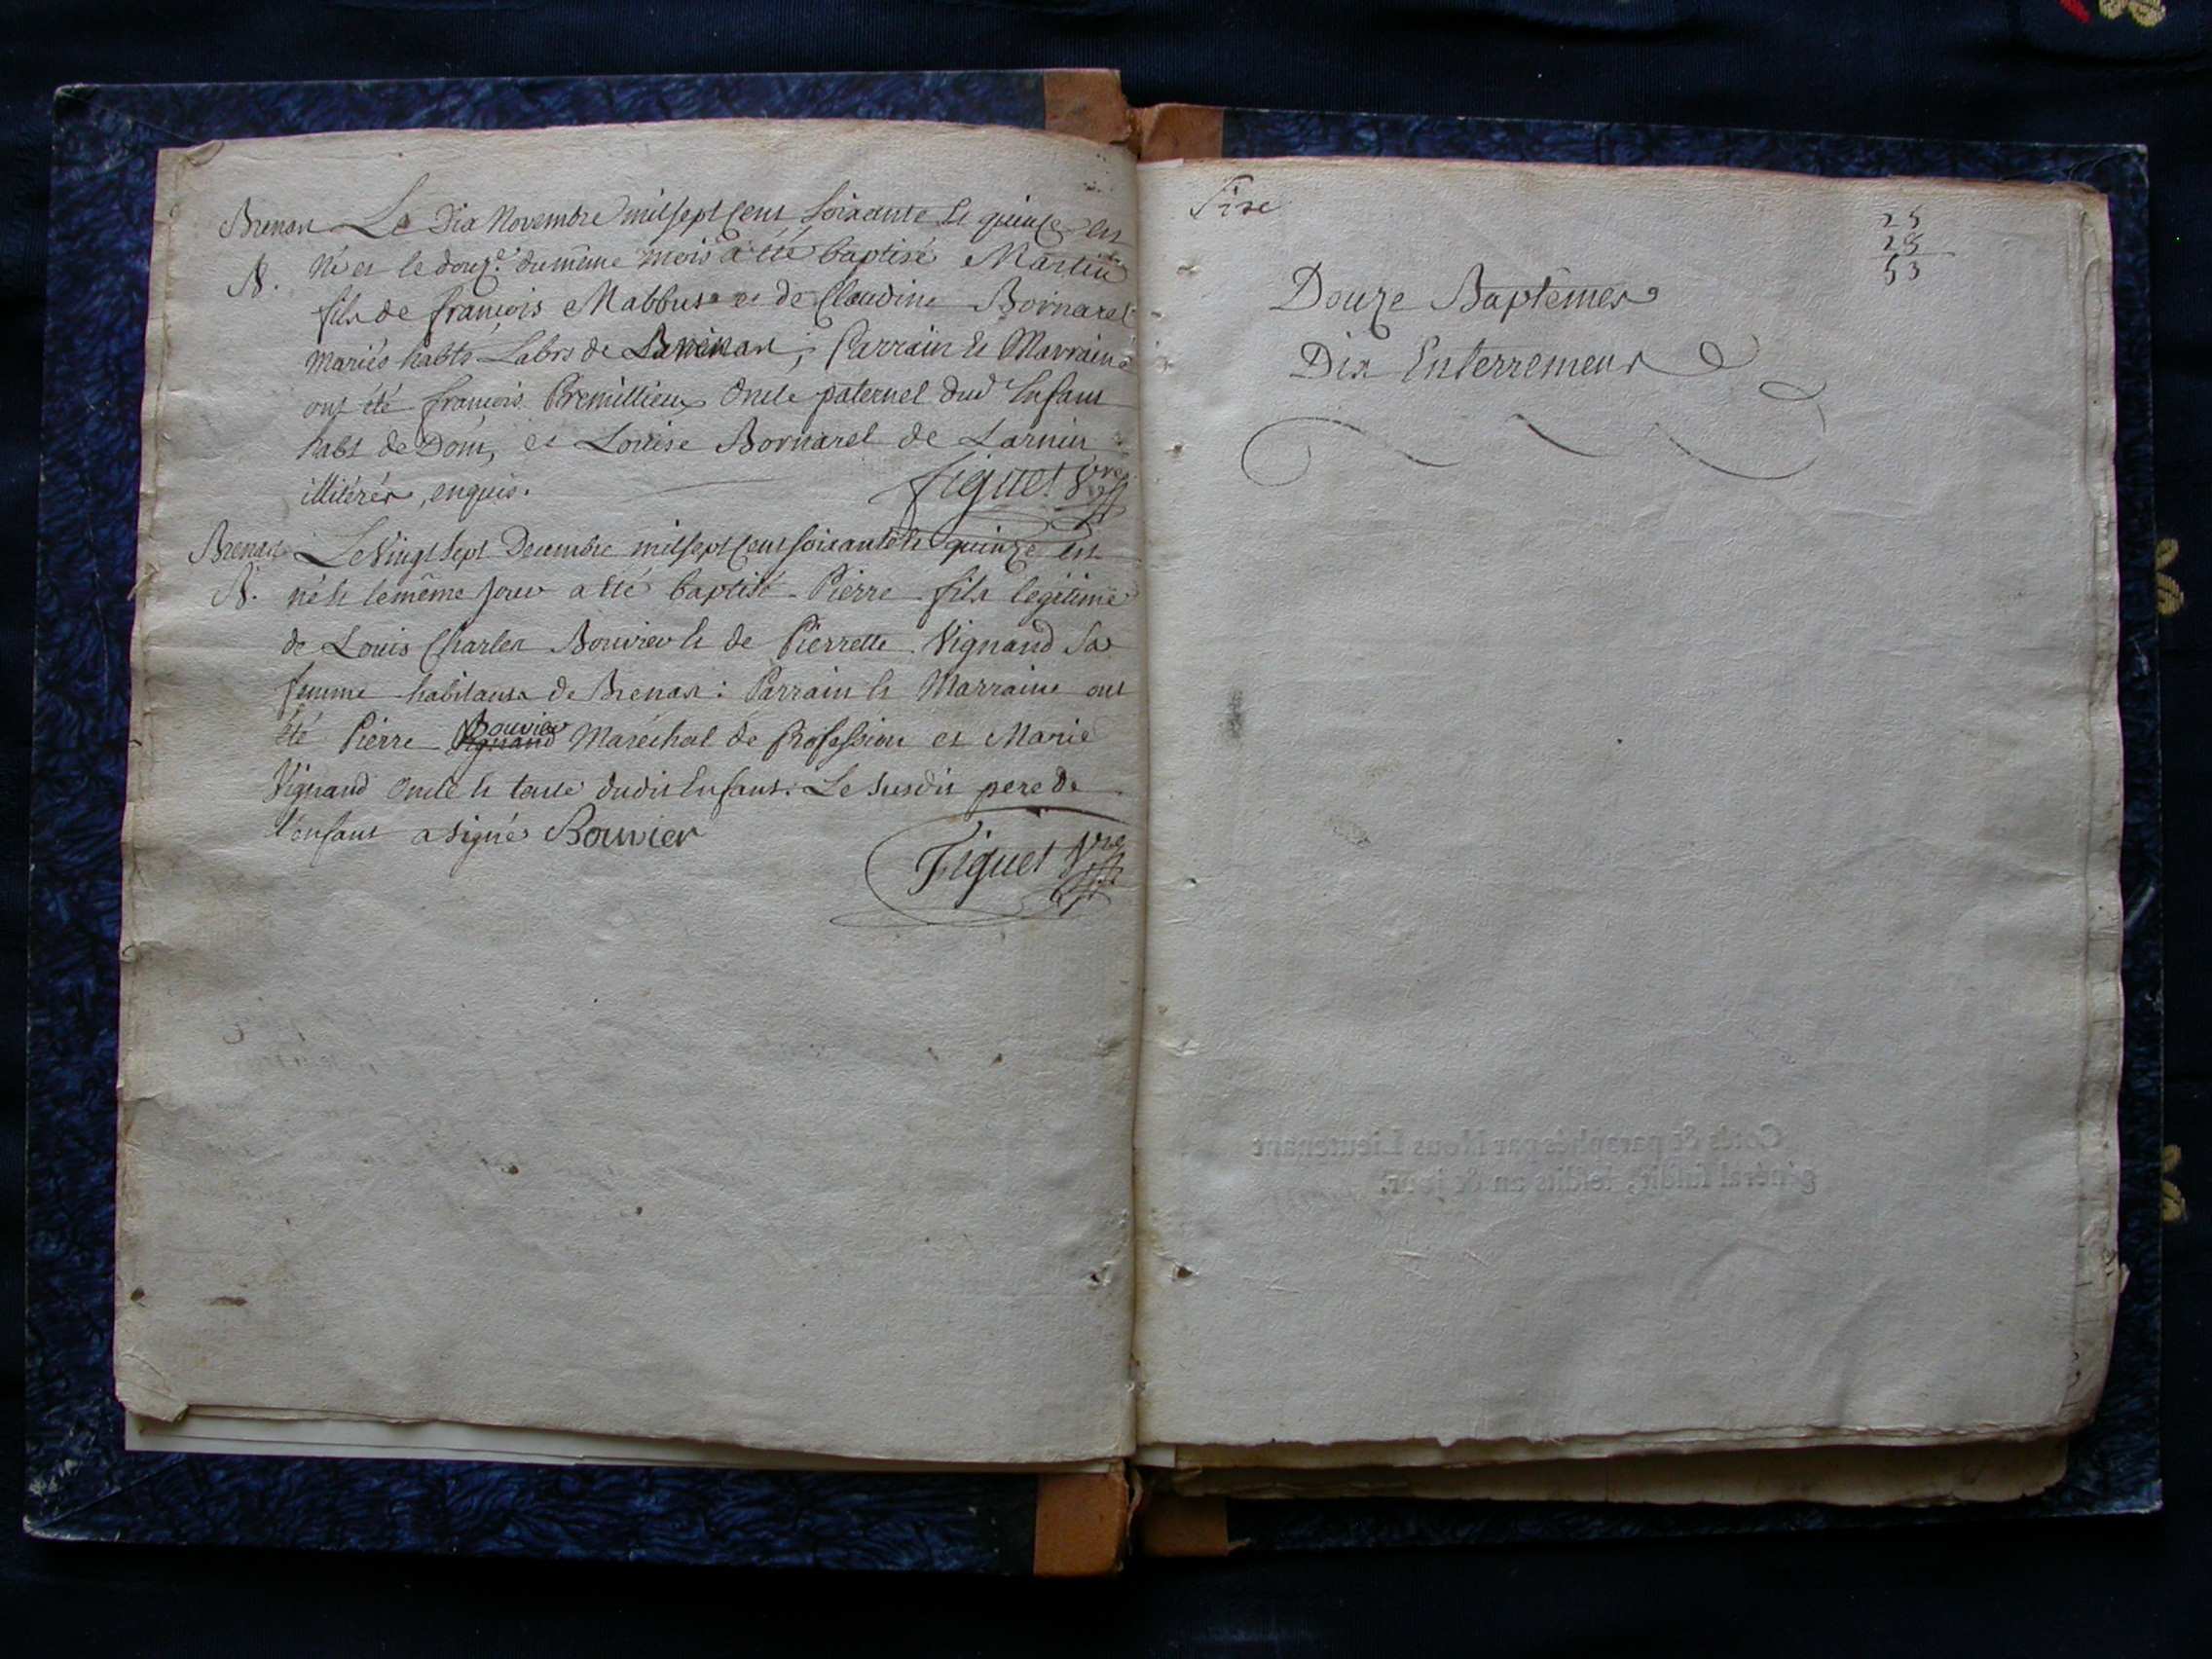 Brenas Le Dix Novembre mil sept cent soixante et quinze est
B. né et le douz.e du même mois a été baptisé Martin
fils de françois Mabbus et de Claudine Bornarel
mariés habts Labrs de Brenas; Parrain et Marraine
ont été françois Premillieux Oncle paternel dud Enfant
habt de Dom, et Louise Bornarel de Larnin
illitérés, enquis.
figuet Vre
Brenas Le Vingt sept Decembre mil sept cent soixante et quinze est
B. né et le même jour a été baptisé Pierre fils légitime
de Louis Charles Bouvier et de Pierrette Vignand sa
femme habitants de Brenas: Parrain et Marraine ont
été Pierre Vignand Bouvier Maréchal de Profession et Marie
Vignand Oncle et tante dudit Enfant. Le susdit pere de
l'enfant a signé Bouvier
Figuet Vre
25
28
53
Douze Baptêmes
Dix Enterremens
Cotés & paraphés par Nous Lieutenant
général susdit, lesdits an & jour.